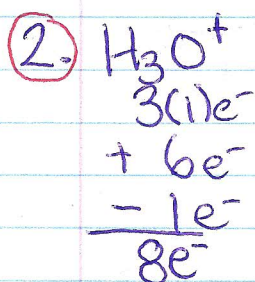 2. H₃O⁺
3(1)e⁻
+ 6e⁻
- 1e⁻
8e⁻